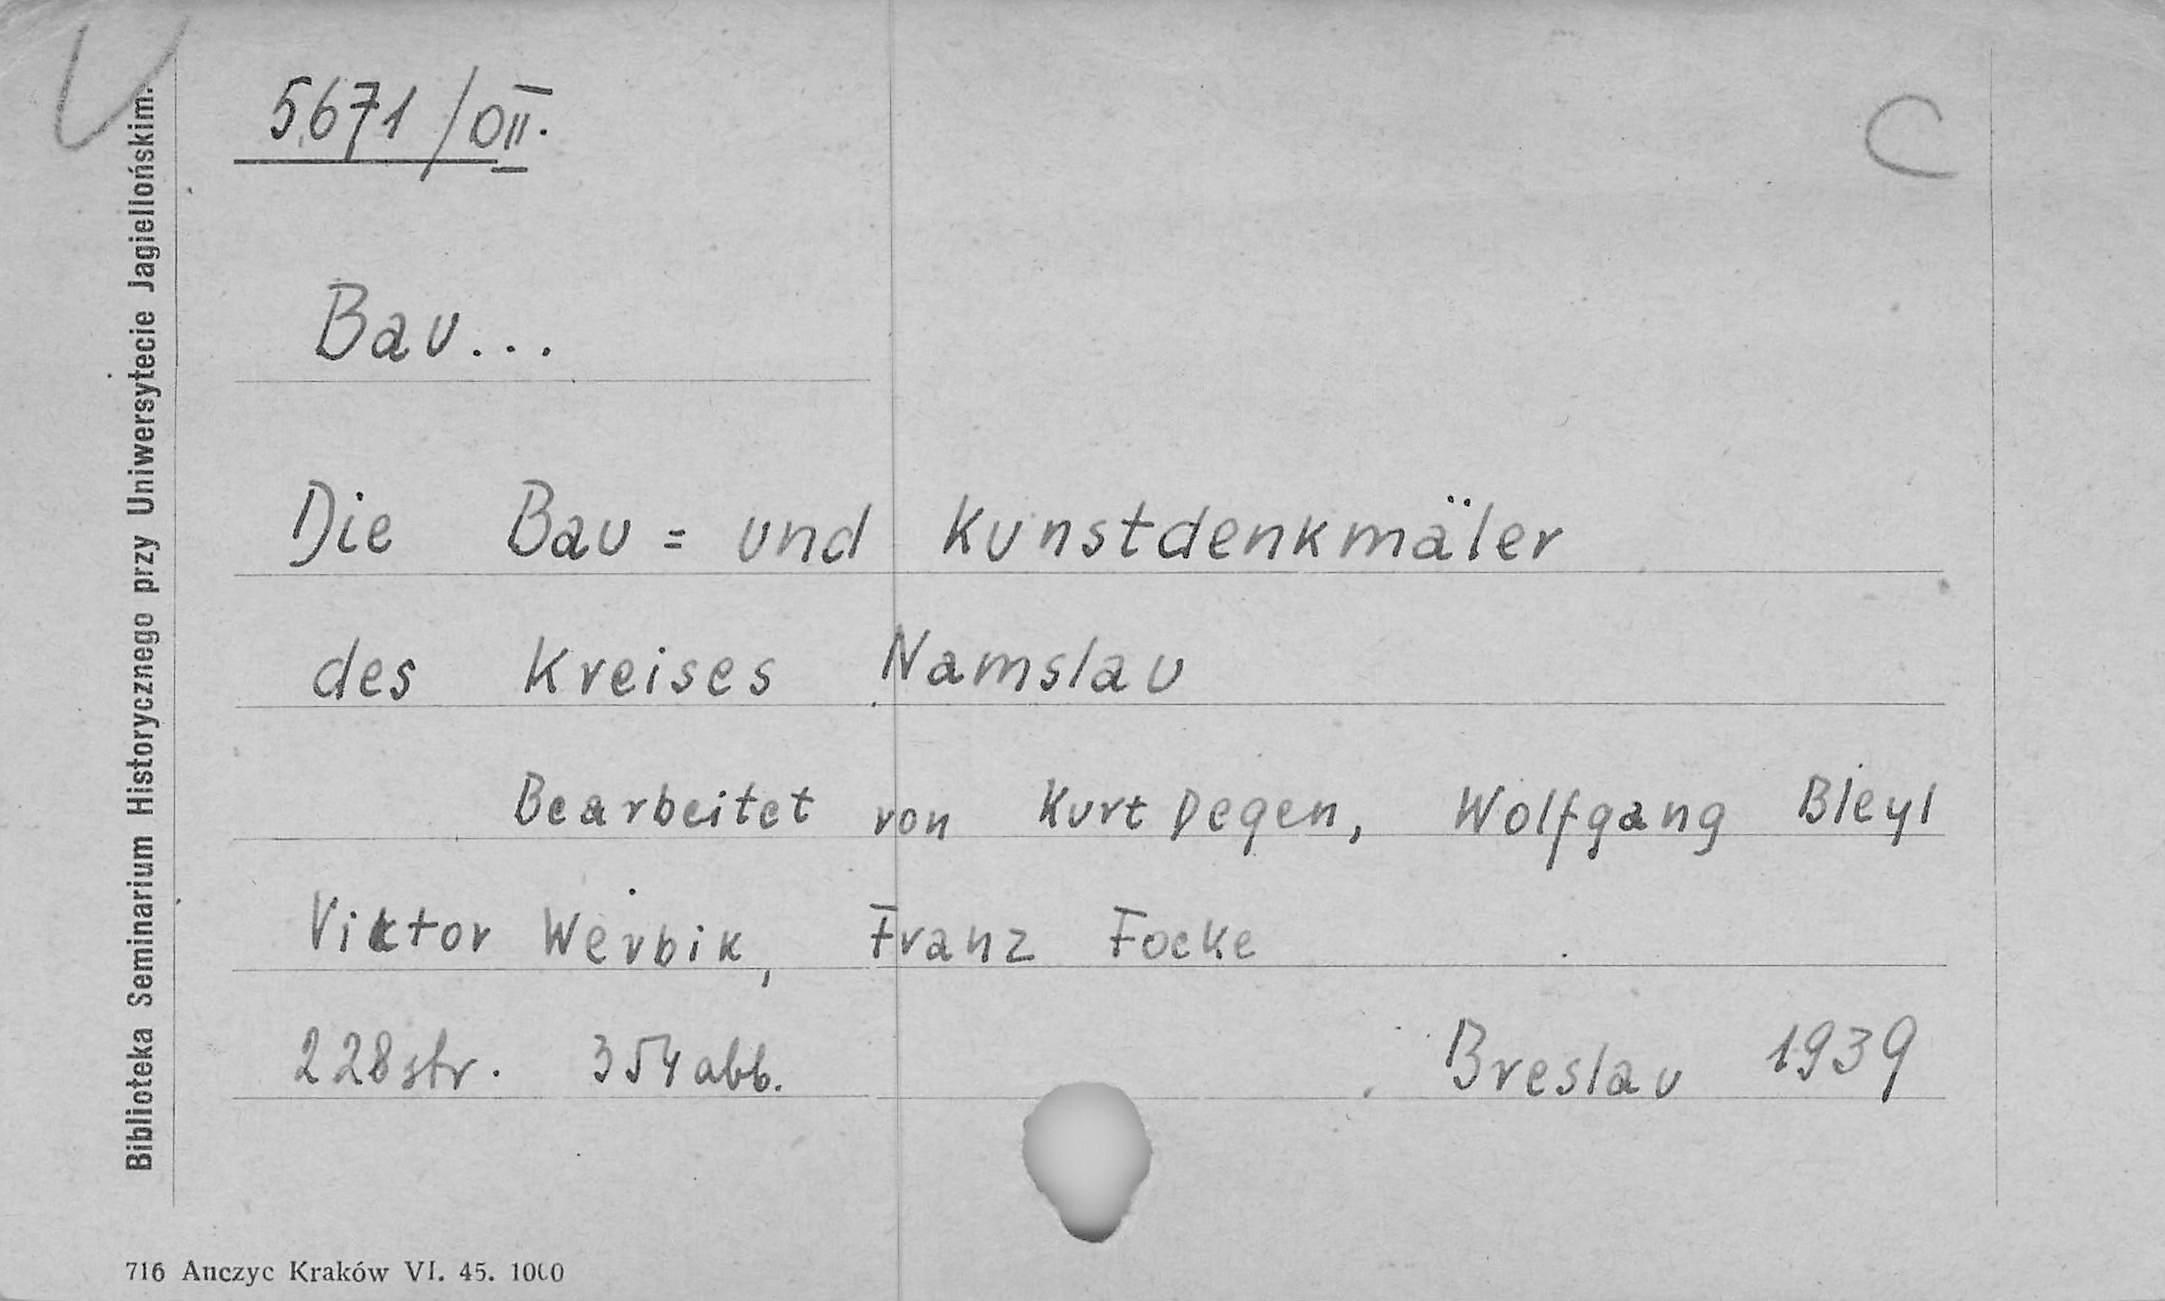 5671/OII.
C
Bau...
Die Bau= und Kunstdenkmäler
des Kreises Namslau
Bearbeitet von Kurt Degen, Wolfgang Bleyl
Viktor Werbik, Franz Focke
228 str. 354 abb. Breslau 1939
Biblioteka Seminarium Historycznego przy Uniwersytecie Jagiellońskim.
716 Anczyc Kraków VI. 45. 1000